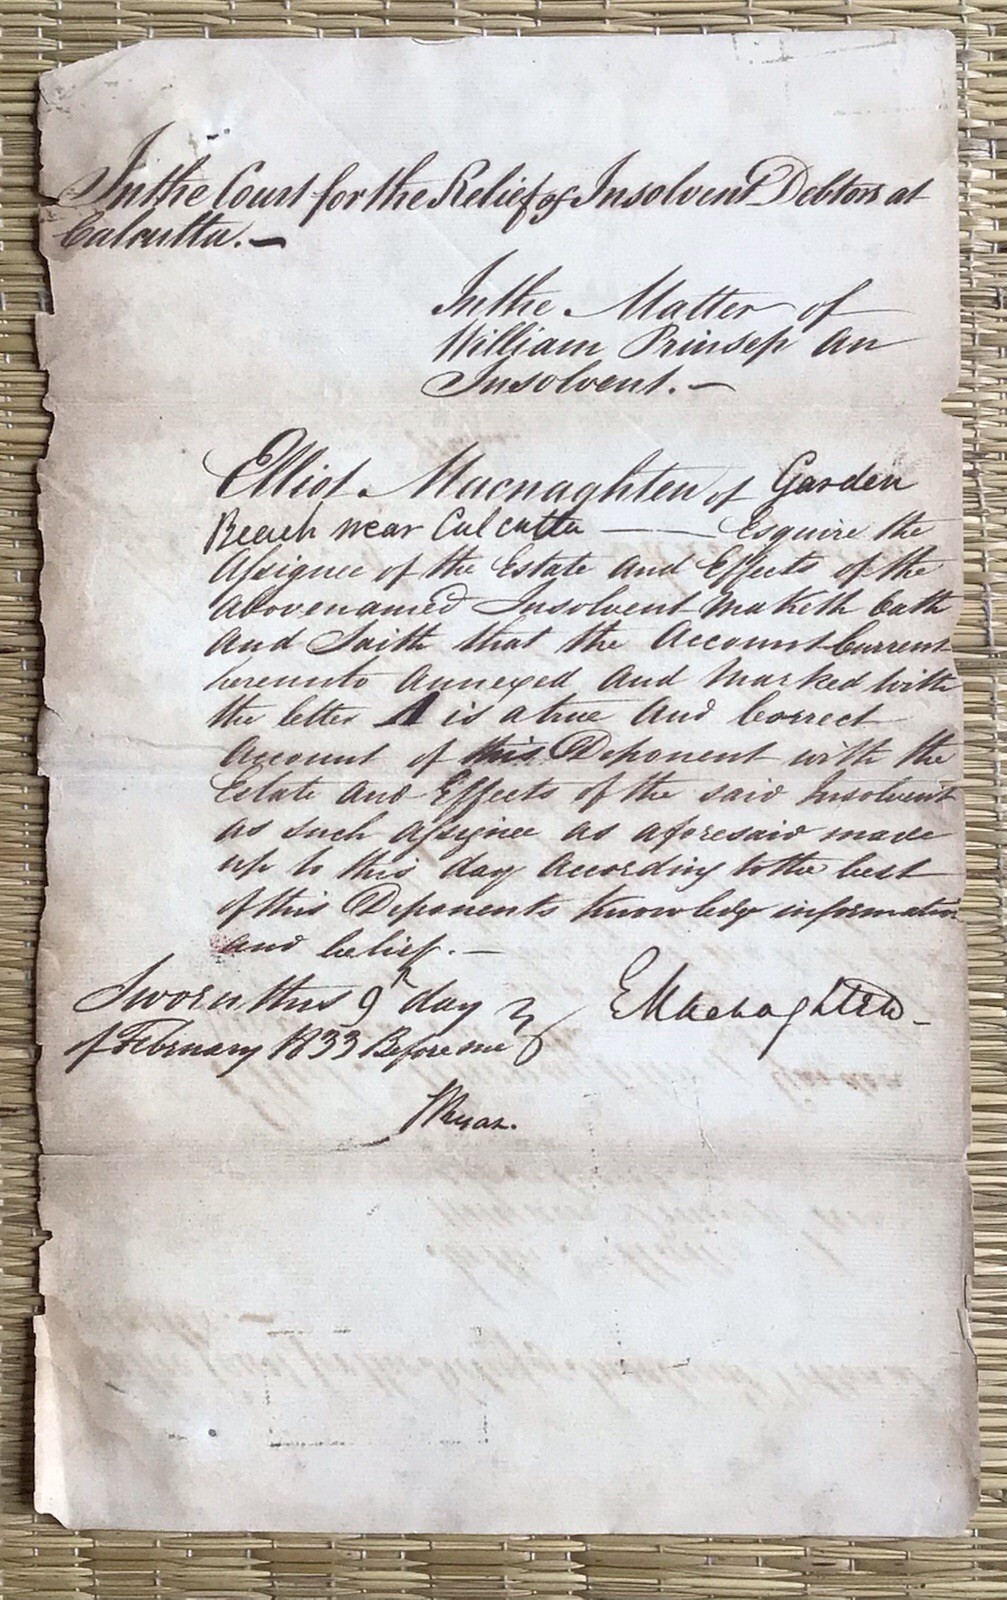 In the Court for the Relief of Insolvent Debtors at
Calcutta.—
In the Matter of
William Prinsep an
Insolvent.—
Elliot Macnaghten of Garden
Reach near Calcutta — Esquire the
Assignee of the Estate and Effects of the
abovenamed Insolvent Maketh Oath
and Saith that the Account Current
hereunto annexed and Marked with
the letter A is a true and Correct
Account of this Deponent with the
Estate and Effects of the said Insolvent
as such assignee as aforesaid made
up to this day according to the best
of this Deponents knowledge information
and belief.—
Sworn this 9th day
of February 1833 Before me
E Macnaghten
Ryan.